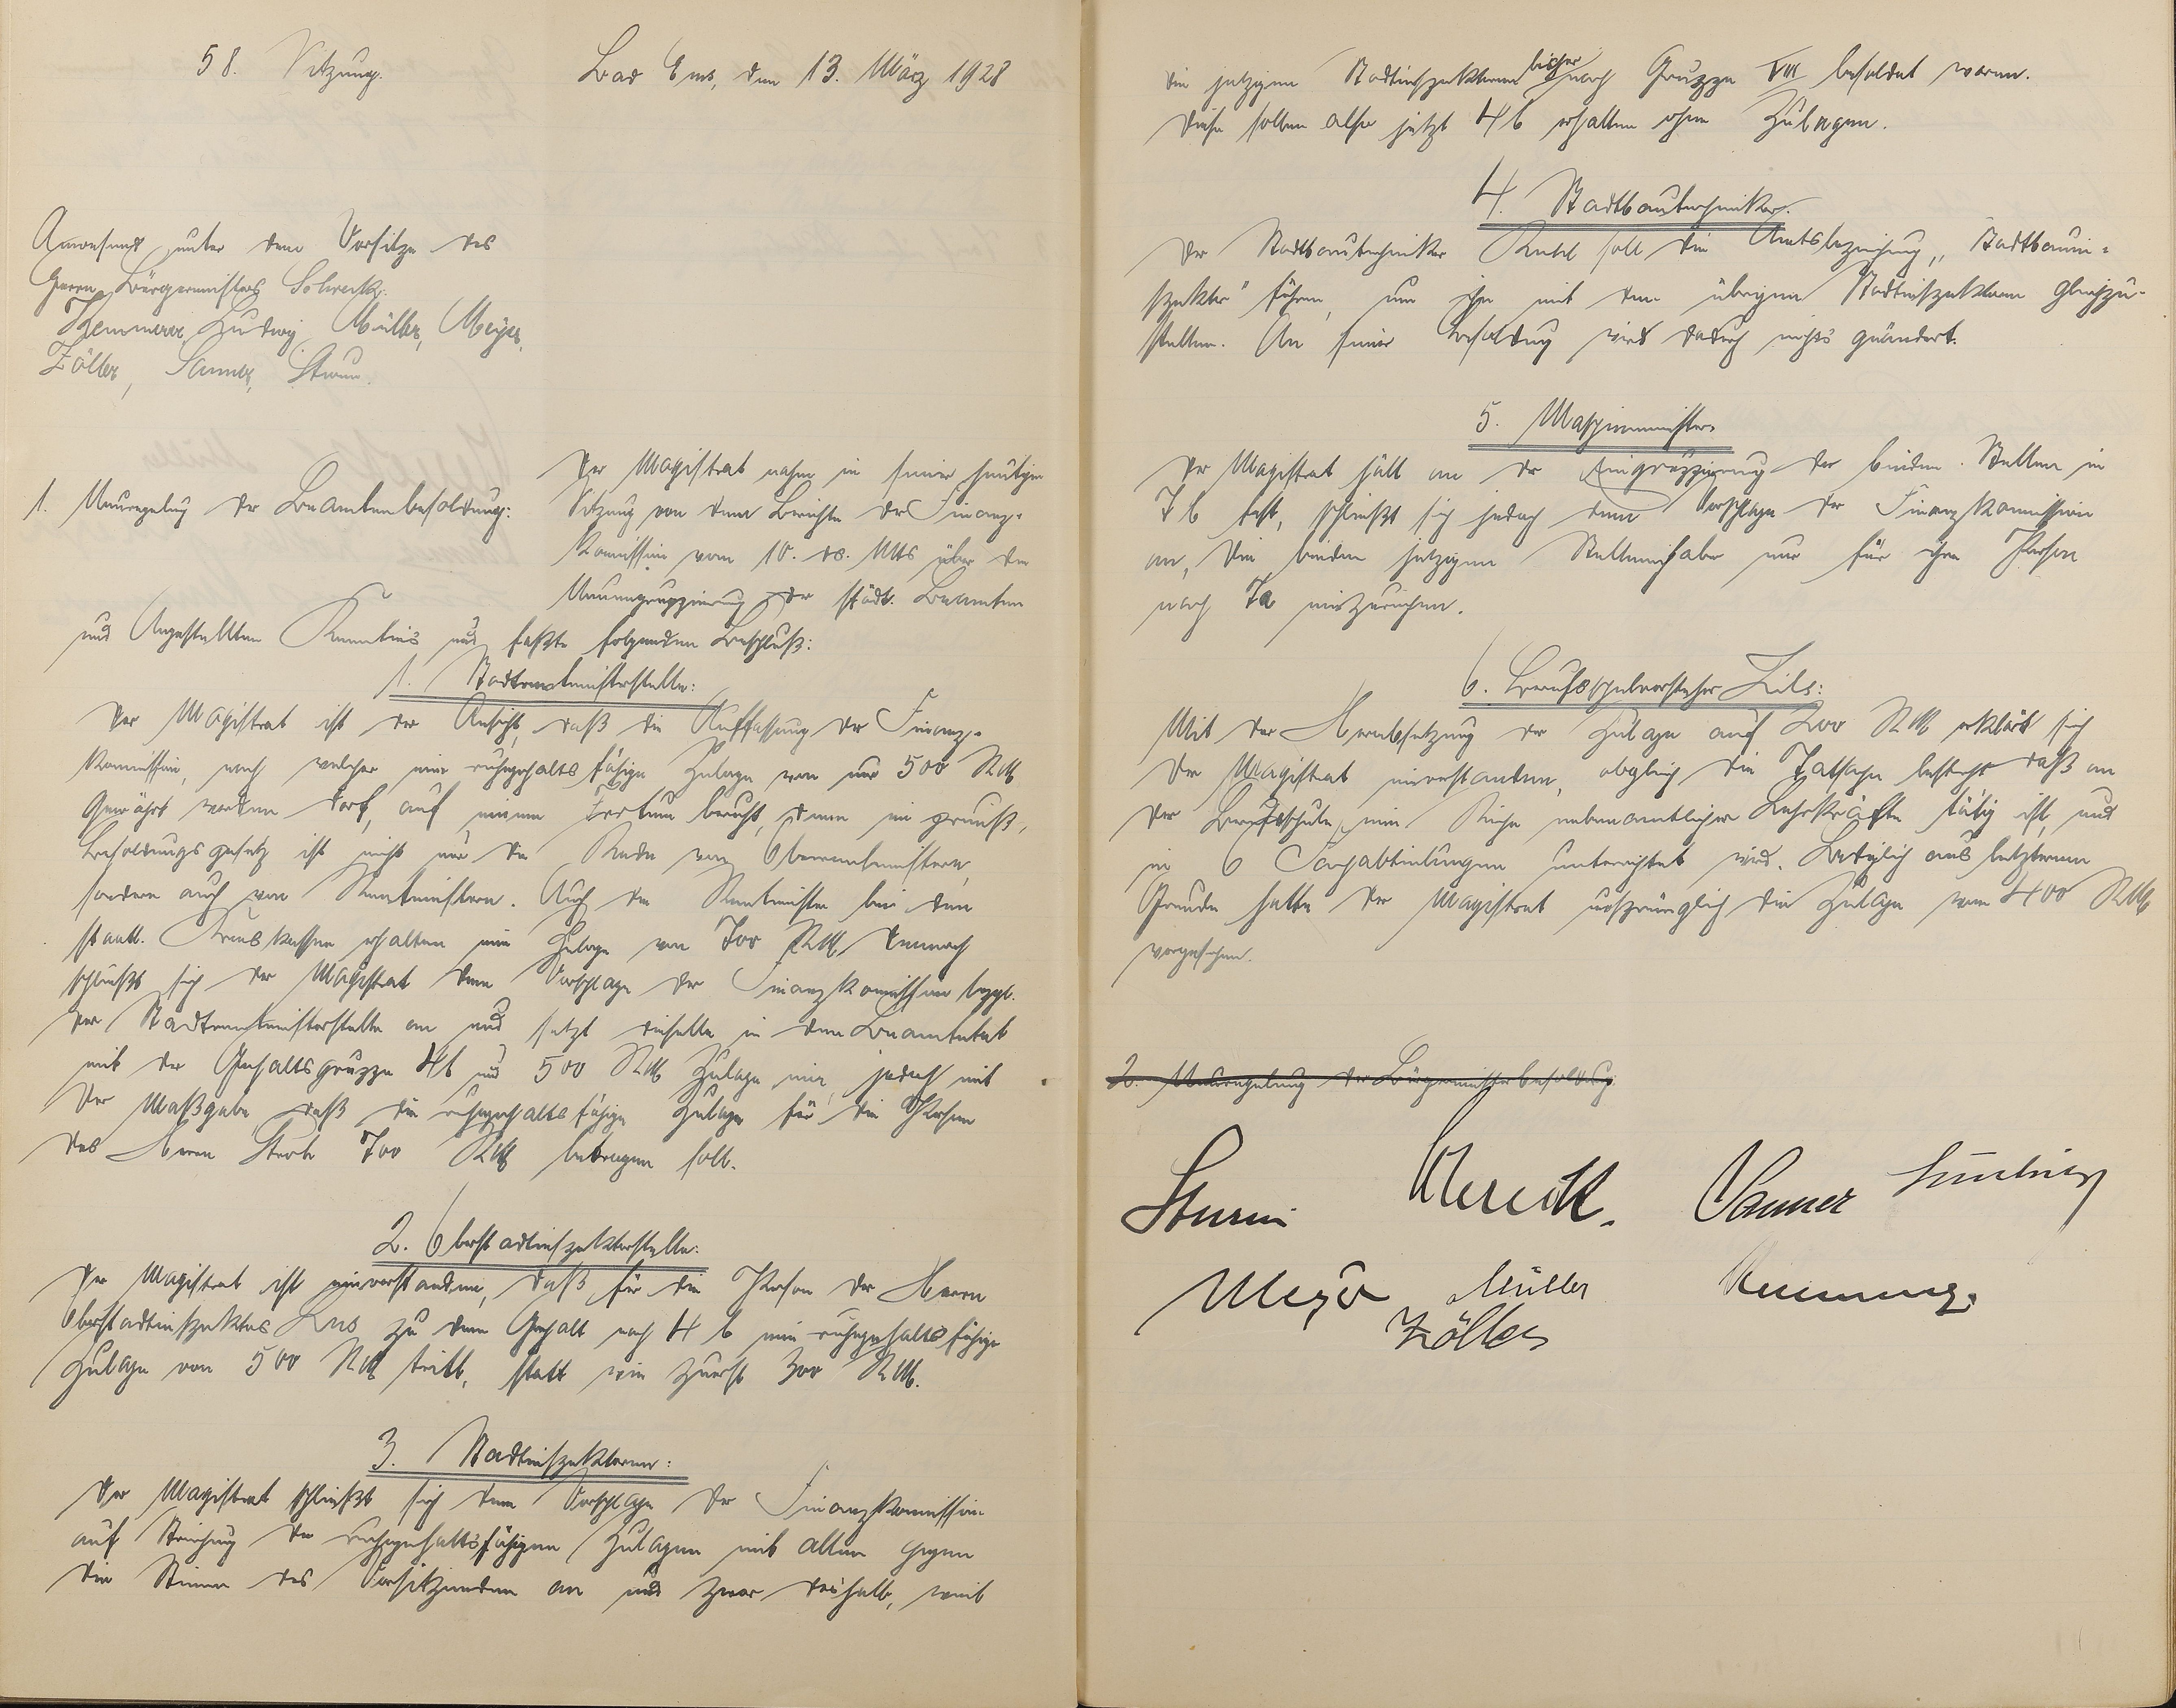 58. Sitzung.
Bad Ems, den 13. März 1928
Anwesend unter dem Vorsitze des
Herrn Bürgermeisters Schreck:
Kemmerer, Ludwig, Müller, Meyer,
Zöller, Sanner, Sturm.
1. Neuregelung der Beamtenbesoldung:
Der Magistrat nahm in seiner heutigen
Sitzung von dem Berichte der Finanz-
komission vom 10. ds. Mts über die
Neueingruppierung der städt. Beamten
und Angestellten Kenntnis und faßte folgenden Beschluß:
1. Stadtrentmeisterstelle:
Der Magistrat ist der Ansicht, daß die Auffassung der Finanz-
kommission, nach welcher eine ruhegehaltsfähige Zulage von nur 500 RM
gewährt werden darf, auf einem Irrtum beruht, denn im preuß.
Besoldungsgesetz ist nicht nur die Rede von Oberrentmeistern,
sondern auch von Rentmeistern. Auch die Rentmeister bei den
staatl. Kreiskassen erhalten eine Zulage von 700 RM. Dennoch
schließt sich der Magistrat dem Vorschlage der Finanzkomission bezgl.
der Stadtrentmeisterstelle an und setzt dieselbe in den Beamtetat
mit der Gehaltsgruppe 4b und 500 RM Zulage ein, jedoch mit
der Maßgabe, daß die ruhegehaltsfähige Zulage für die Person
des Herrn 700 RM betragen soll.
2. Oberstadtinspektorstelle:
Der Magistrat ist einverstanden, daß für die Person des Herrn
Oberstadtinspektors zu dem Gehalt nach 4 b eine ruhegehaltsfähige
Zulage von 500 RM tritt, statt wie zuerst 300 RM.
3. Stadtinspektoren:
Der Magistrat schließt sich dem Vorschlage der Finanzkommission
auf Streichung der ruhegehaltsfähigen Zulagen mit allen gegen
die Stimme des Vorsitzenden an und zwar deshalb, weil
die jetzigen Stadtinspektoren bisher nach Gruppe VIII besoldet waren.
Diese sollen also jetzt 4 b erhalten ohne Zulagen.
4. Stadtbautechniker.
Der Stadtbautechniker soll die Amtsbezeichnung „Stadtbauin-
spektor" führen, um ihn mit den übrigen Stadtinspektoren gleichzu-
stellen. An seiner Besoldung wird dadurch nichts geändert.
5. Maschinenmeister.
Der Magistrat hält an der Eingruppierung der beiden Stellen in
7 b fest, schließt sich jedoch dem Vorschlage der Finanzkomission
an, die beiden jetzigen Stelleninhaber nur für ihre Person
nach 7a einzureihen.
6. Berufsschulvorsteher Zils:
Mit der Herabsetzung der Zulage auf 200 RM erklärt sich
der Magistrat einverstanden, obgleich die Tatsache besteht daß an
der Berufsschule eine Reihe nebenamtlicher Lehrkräfte tätig ist, und
in 6 Fachabteilungen unterrichtet wird. Lediglich aus letzterem
Grunde hatte der Magistrat ursprünglich die Zulage von 400 RM
vorgesehen.
2. Neuregelung der Bürgermeisterbesoldung
Sturm Schreck. Sanner Ludwig
Meyer Müller Kemmerer.
Zöller